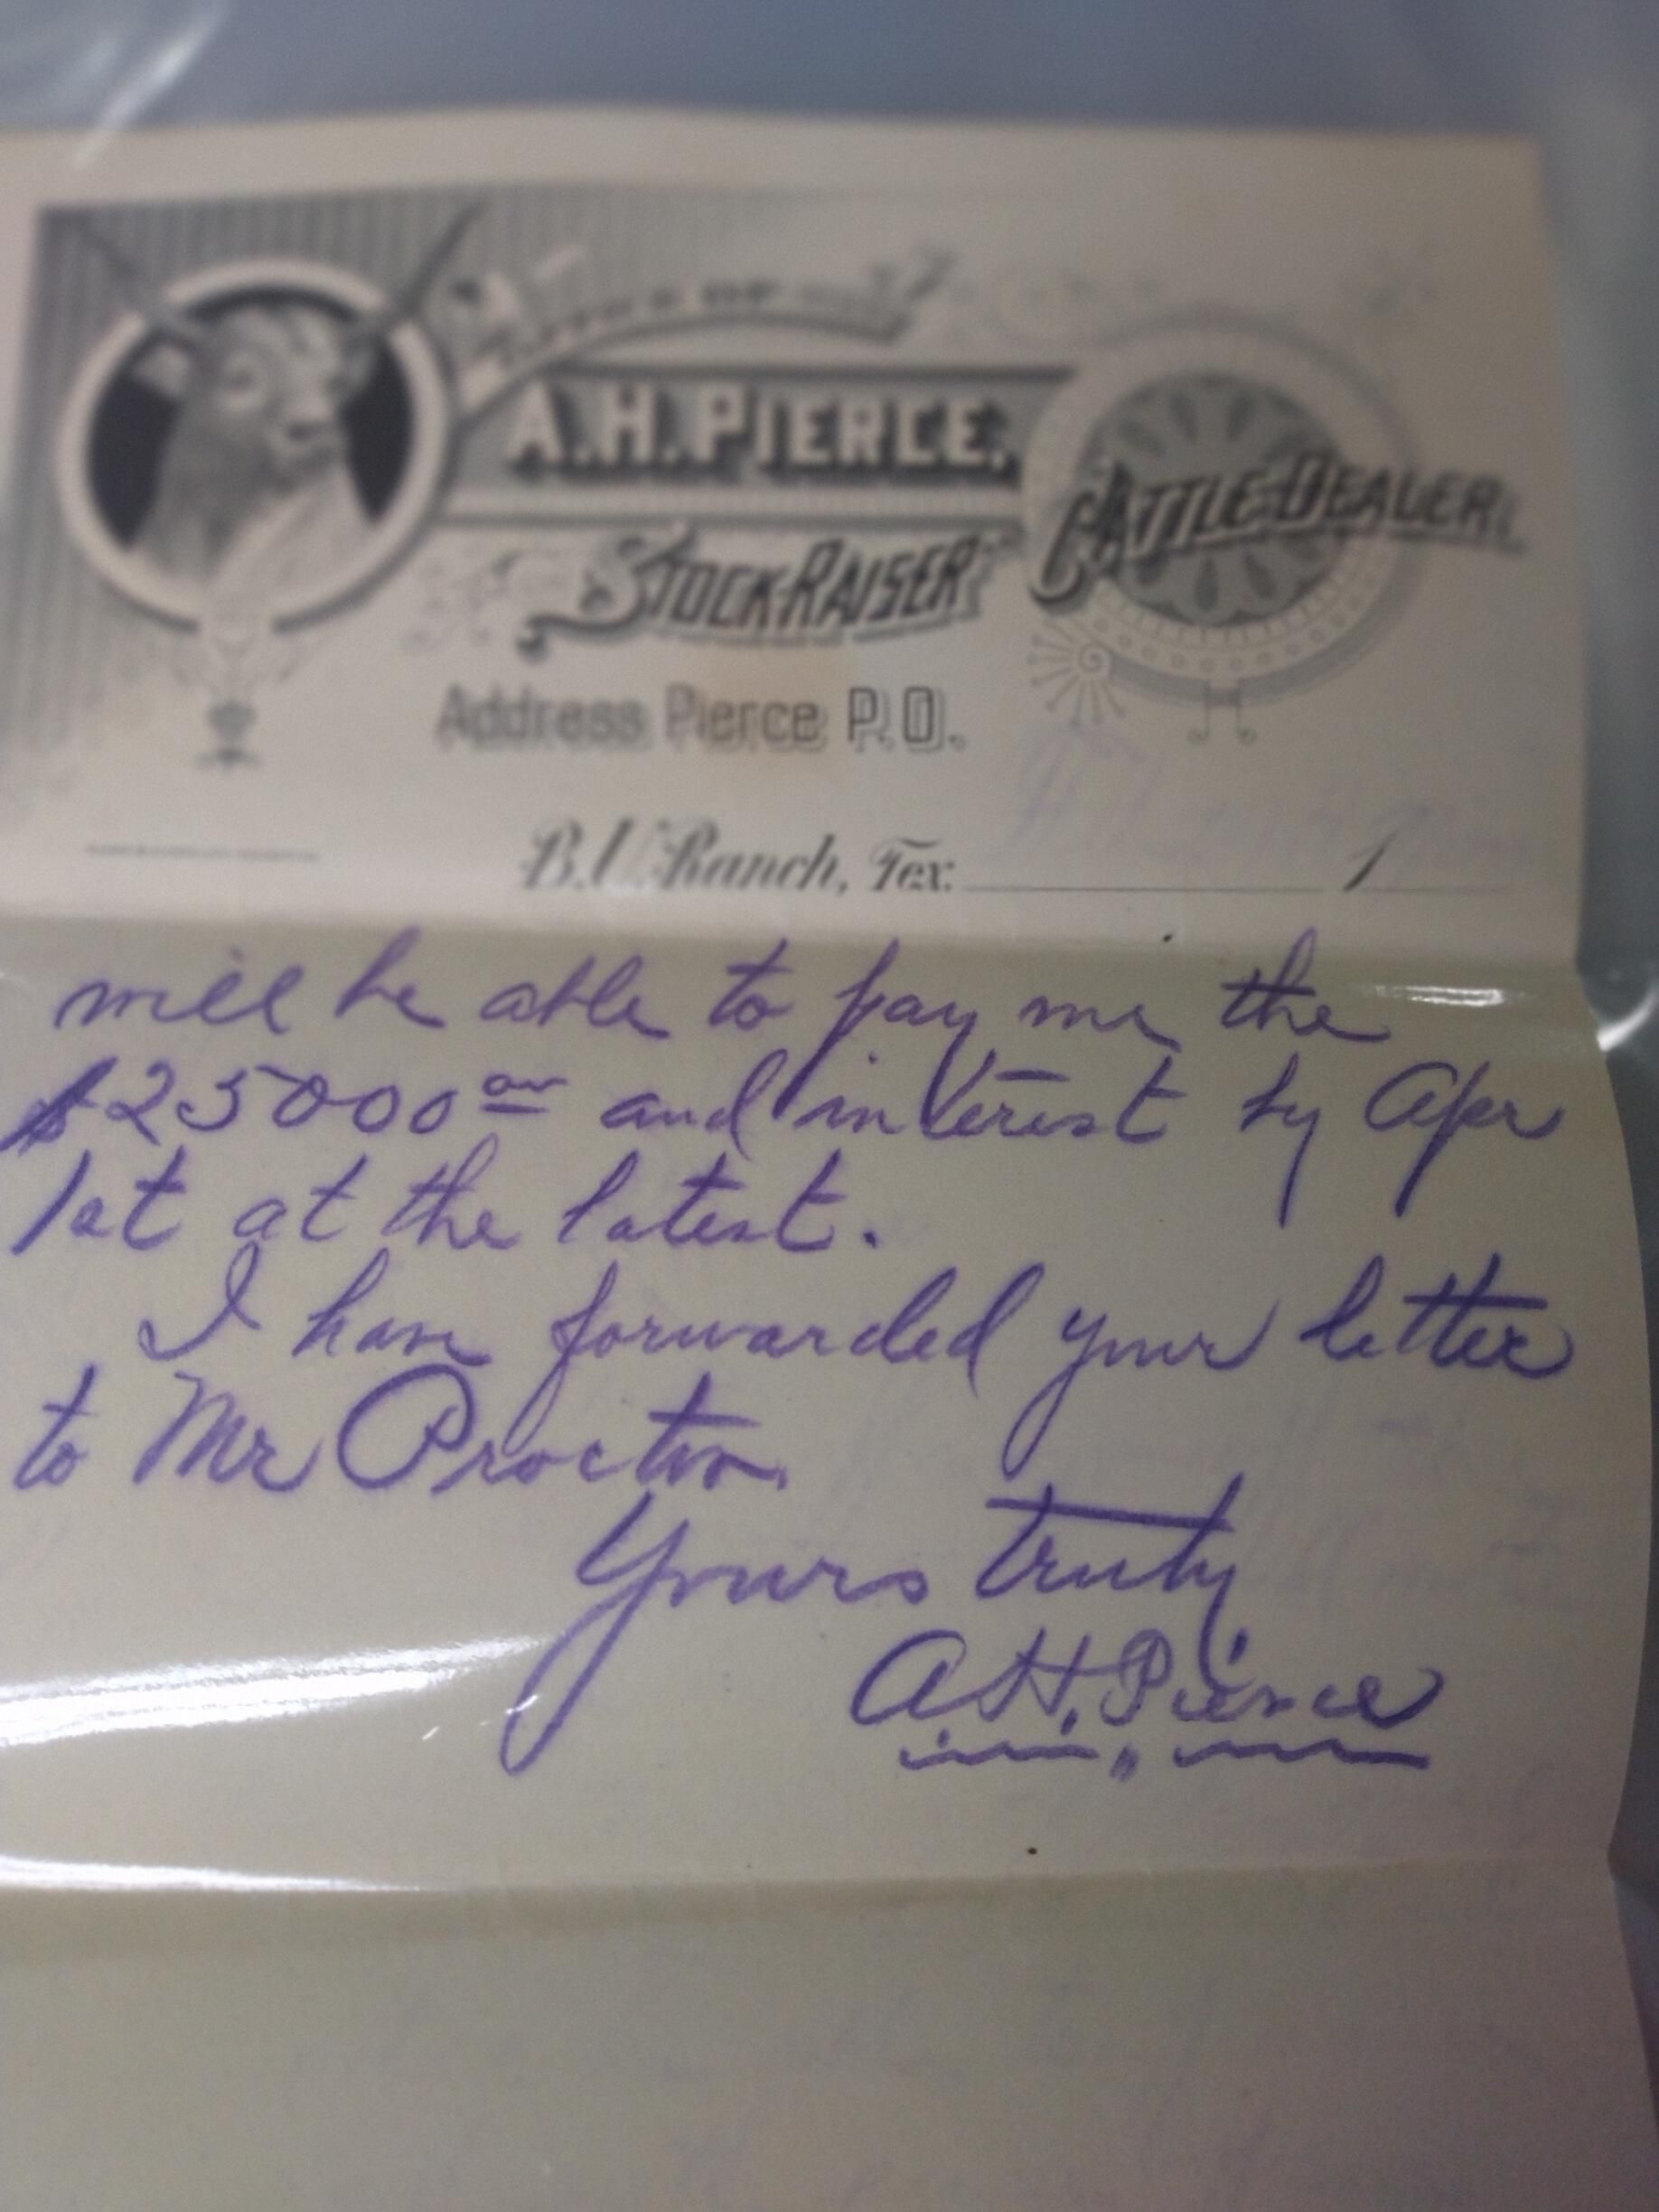 OFFICE OF
A.H. PIERCE,
STOCK-RAISER
CATTLE-DEALER.
Address Pierce P.O.
B.U. Ranch, Tex. 1
will be able to pay me the
$25000 00 and interest by Apr
1st at the latest.
I have forwarded your letter
to Mr Proctor.
Yours truly
A.H. Pierce